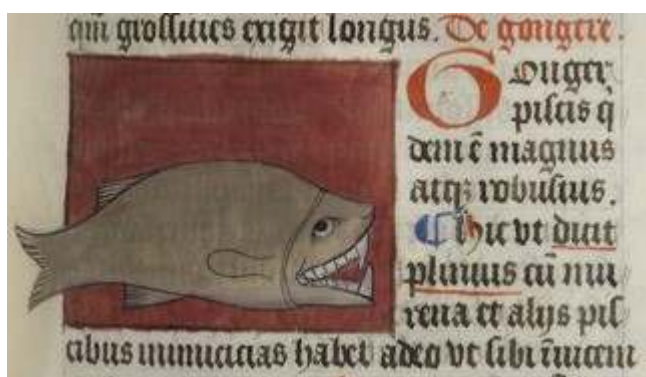 qm̄ grossities exigit longus. De gongere.
Gonger
piscis q
dem ē magnus
atqꝫ robustus.
Hic vt dicit
plinius cū mu
rena et alijs pis
cibus inimicicias habet adeo vt sibi īuicem